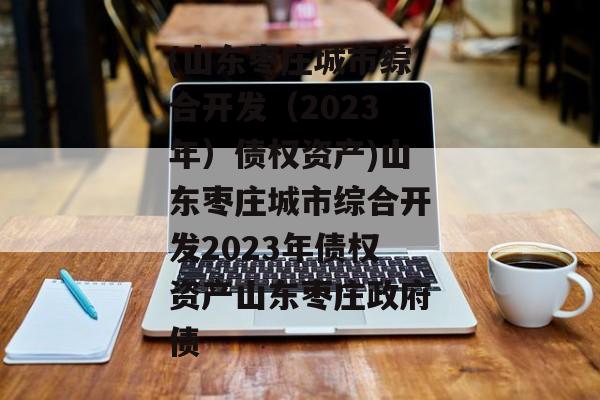 (山东枣庄城市综
合开发（2023
年）债权资产)山
东枣庄城市综合开
发2023年债权
资产山东枣庄政府
债